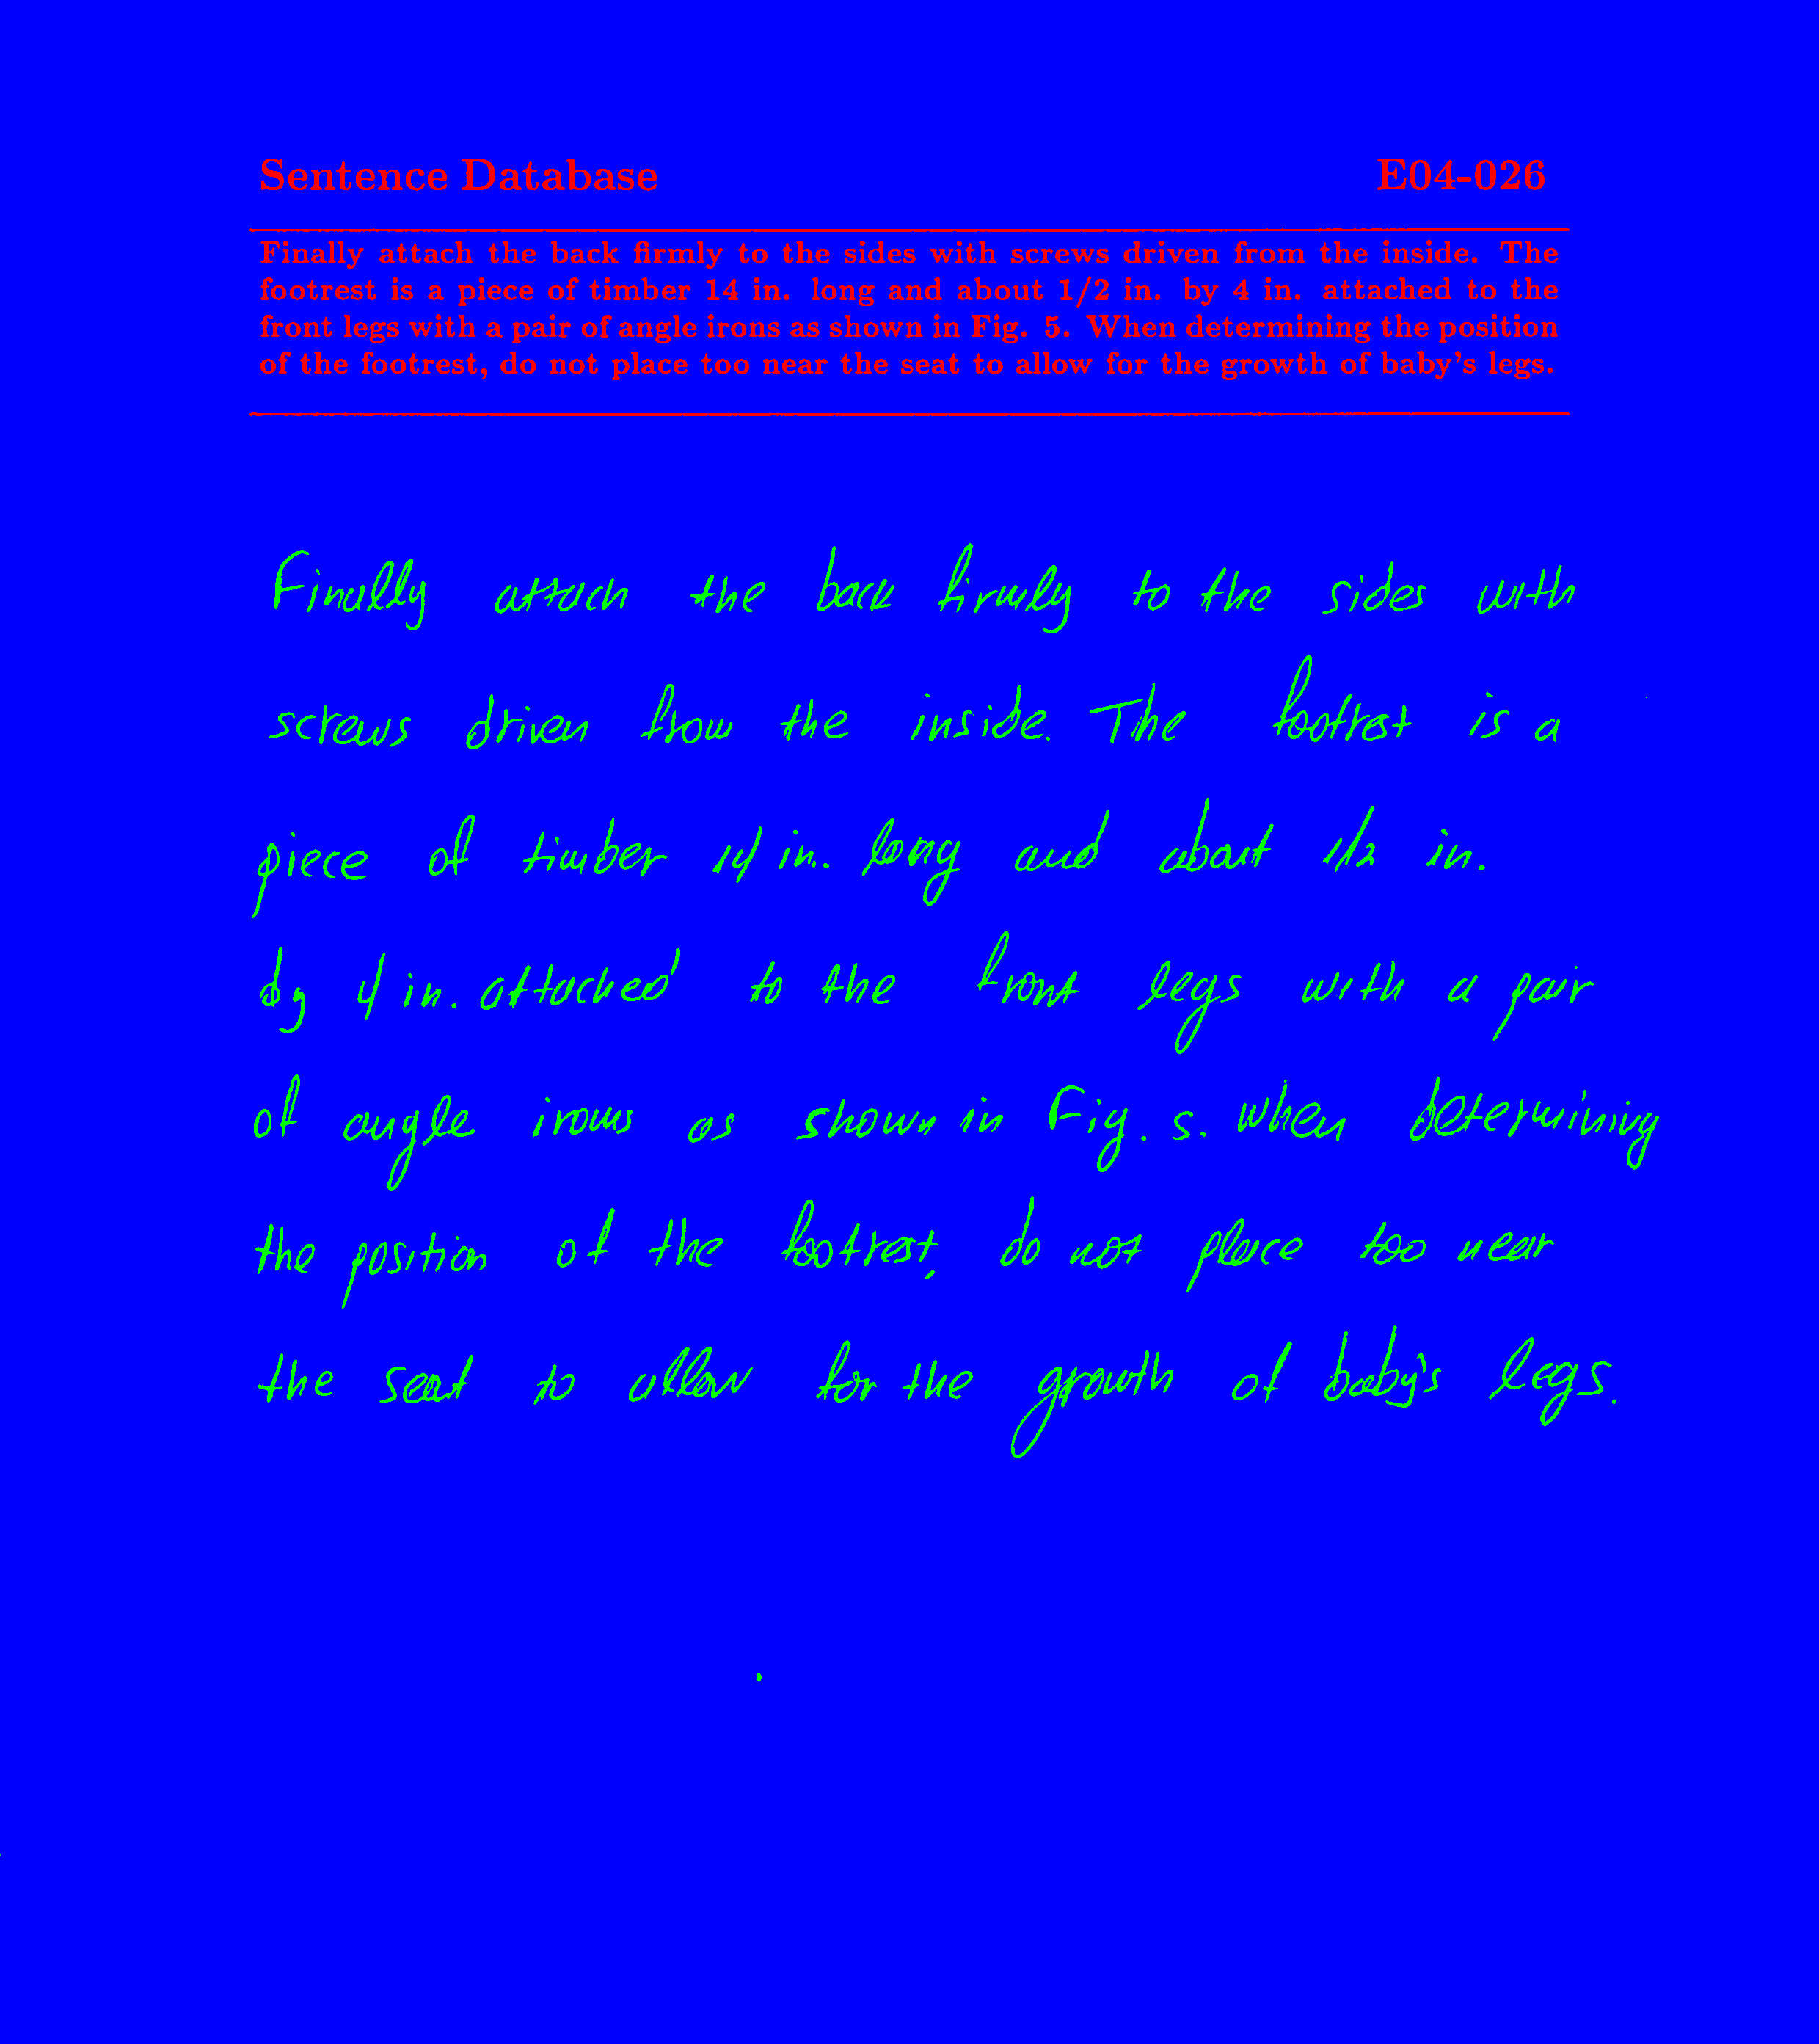 Sentence Database E04-026
Finally attach the back firmly to the sides with screws driven from the inside. The
footrest is a piece of timber 14 in. long and about 1/2 in. by 4 in. attached to the
front legs with a pair of angle irons as shown in Fig. 5. When determining the position
of the footrest, do not place too near the seat to allow for the growth of baby's legs.
Finally attach the back firmly to the sides with
screws driven from the inside. The footrest is a
piece of timber 14 in. long and about 1/2 in.
by 4 in. attached to the front legs with a pair
of angle irons as shown in Fig. 5. When determining
the position of the footrest, do not place too near
the seat to allow for the growth of baby's legs.